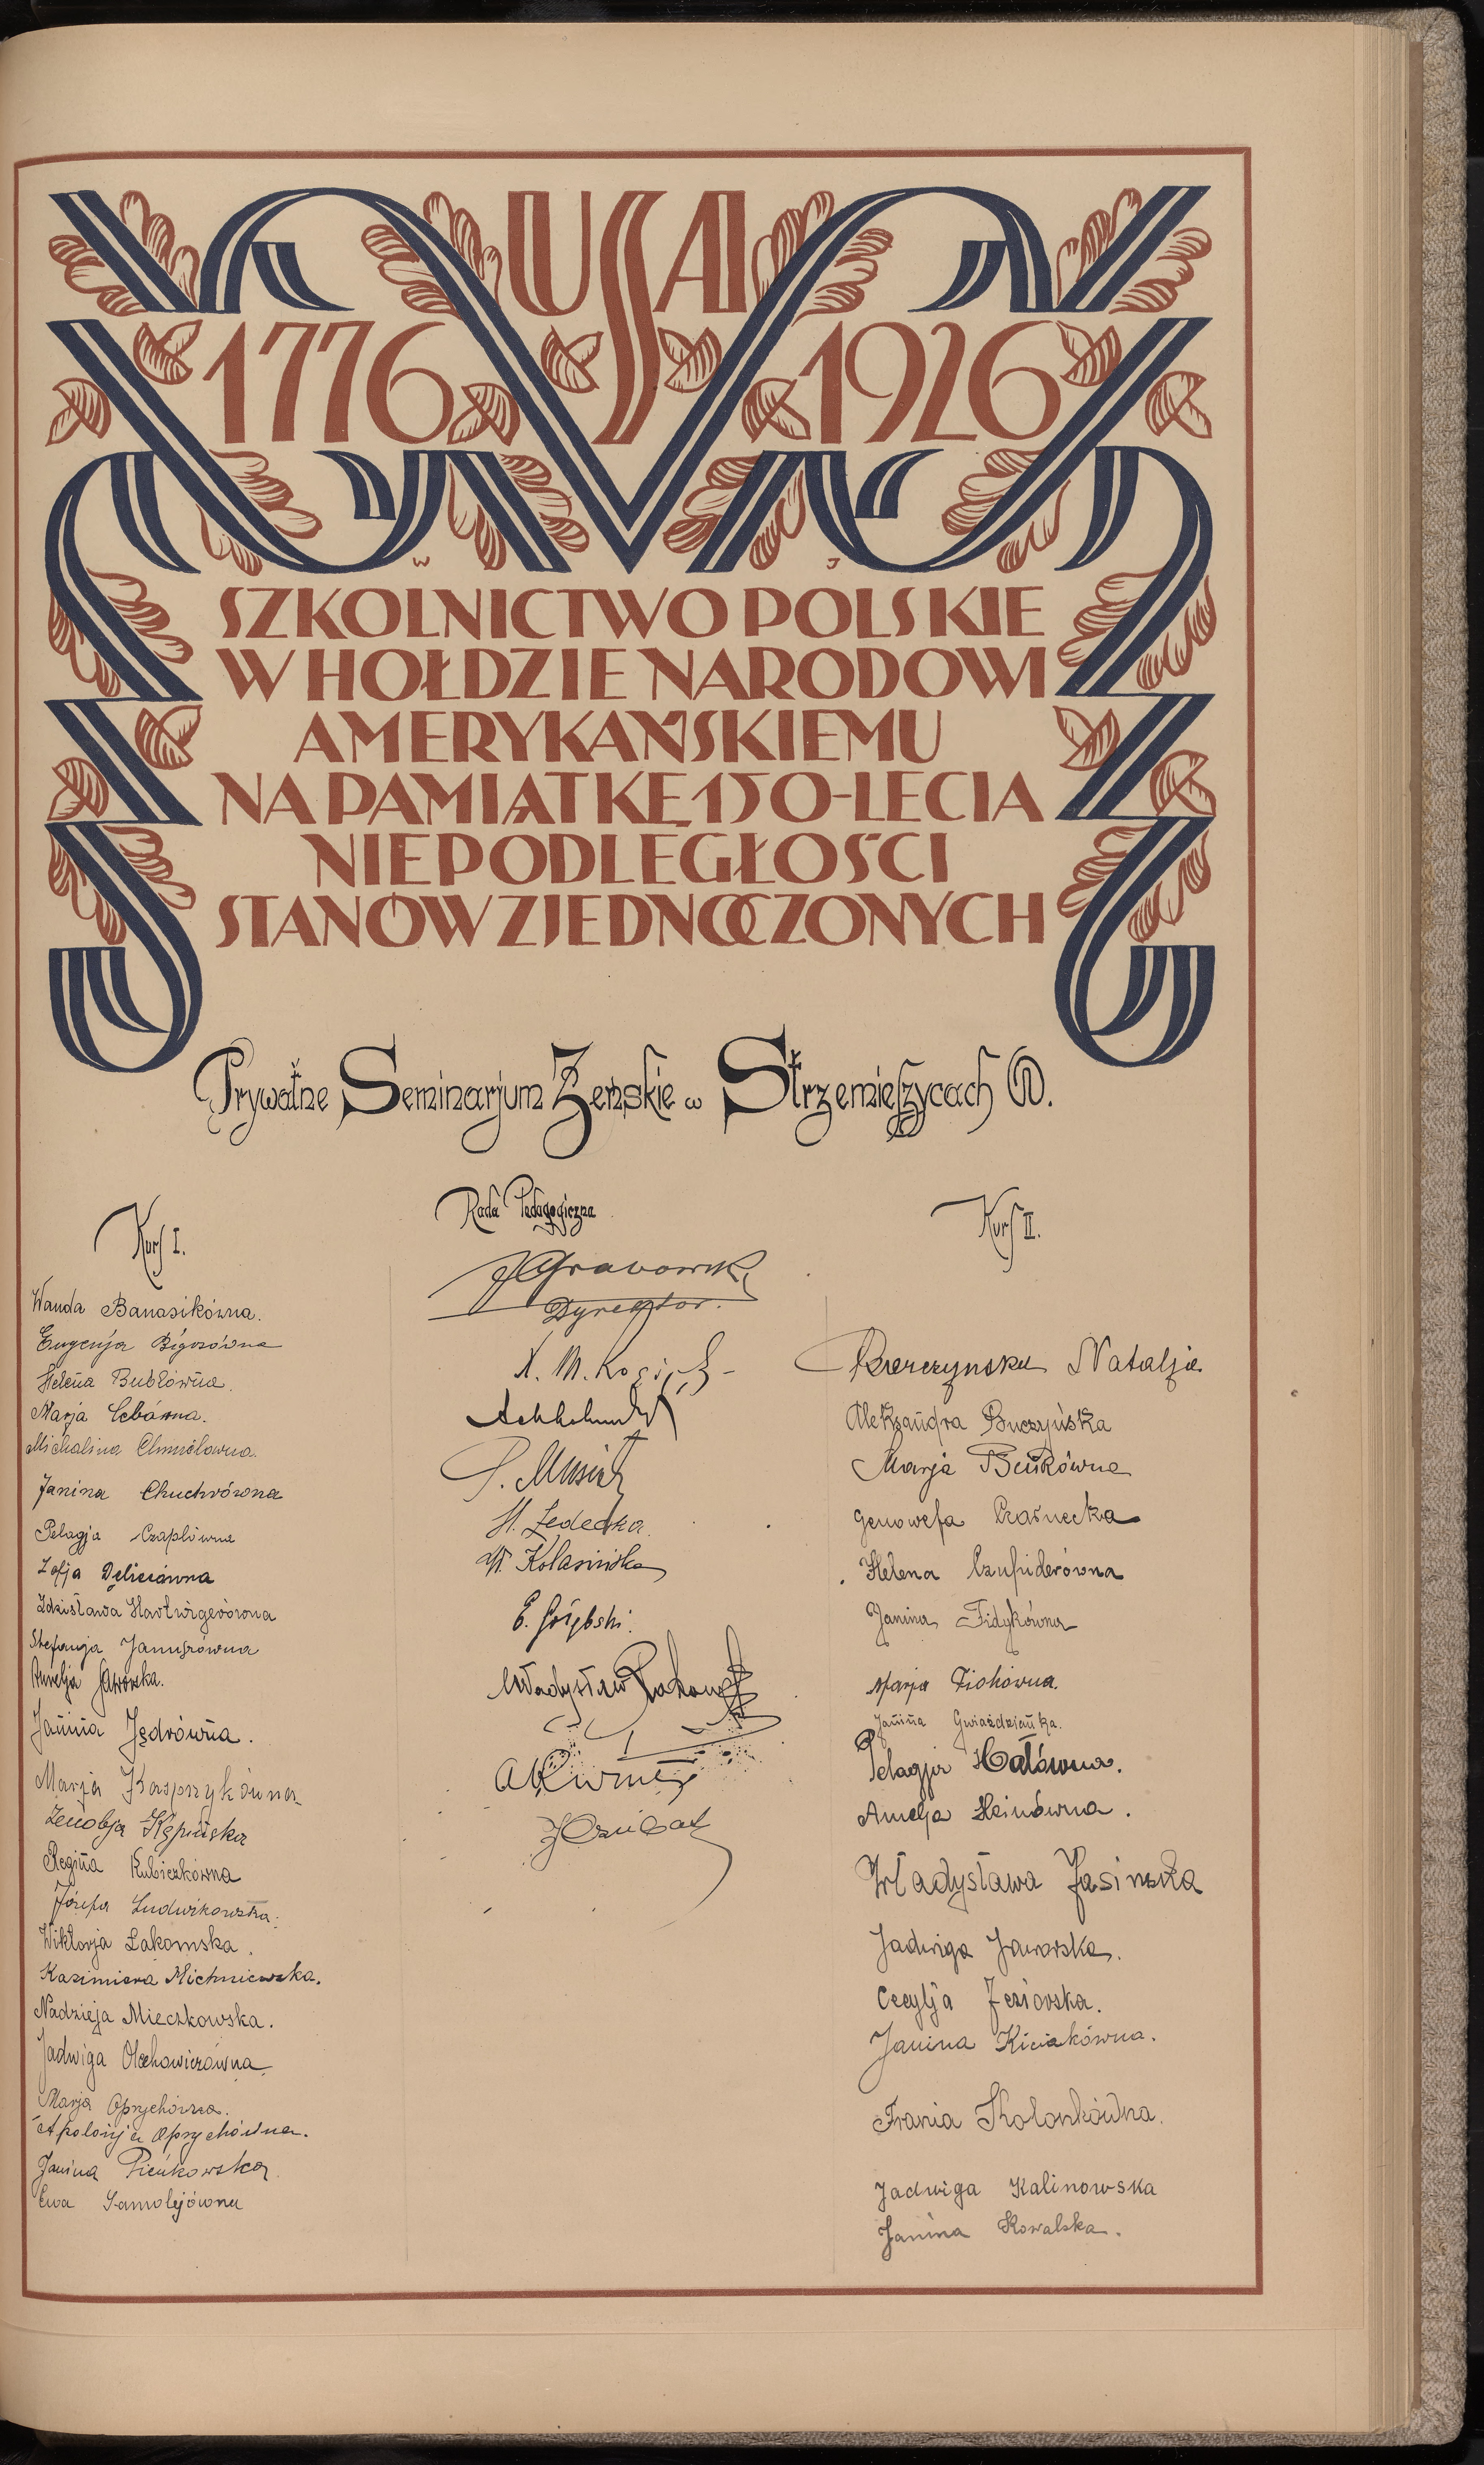 USA
1776 1926
W J
SZKOLNICTWO POLSKIE
W HOŁDZIE NARODOWI
AMERYKAŃSKIEMU
NA PAMIĄTKĘ 150-LECIA
NIEPODLEGŁOŚCI
STANÓW ZJEDNOCZONYCH
Prywatne Seminarjum Żeńskie w Strzemieszycach W.
Kurs I.
Wanda Banasikówna.
Eugenja Bigosówna
Helena Bubłówna.
Marja
Michalina
Janina Chuchrówna
Pelagja Czaplówna
Zofja
Zdzisława Hartwigerówna
Stefanja Januszówna
Aurelja Jaworska.
Janina Jędrówna.
Marja Kasprzykówna
Zenobja Kępińska
Regina Kubiczkówna
Józefa Ludwikowska.
Wiktorja Łakomska.
Kazimiera Michniewska.
Nadzieja Mieczkowska.
Jadwiga Olechowiczówna
Marja Oprychówna.
Apolonja Oprychówna.
Janina Pieńkowska
Ewa Samolejówna
Rada Pedagogiczna
J Grabowski
Dyrektor.
X. M.
P. Musiał
H. Żedecka.
W. Kolasińska
E. Gołębski.
Władysław
Kurs II.
Natalja
Aleksandra Buczyńska
Marja Beńkówna
Genowefa Czarnecka
Helena Czupiderówna
Janina Fidykówna
Marja
Janina Gwiaździanka.
Pelagja Hałówna.
Amelja Heinówna.
Władysława Jasińska
Jadwiga Jaworska.
Cecylja Jeziorska.
Janina Kiciakówna.
Frania Kolonkówna.
Jadwiga Kalinowska
Janina Kowalska.